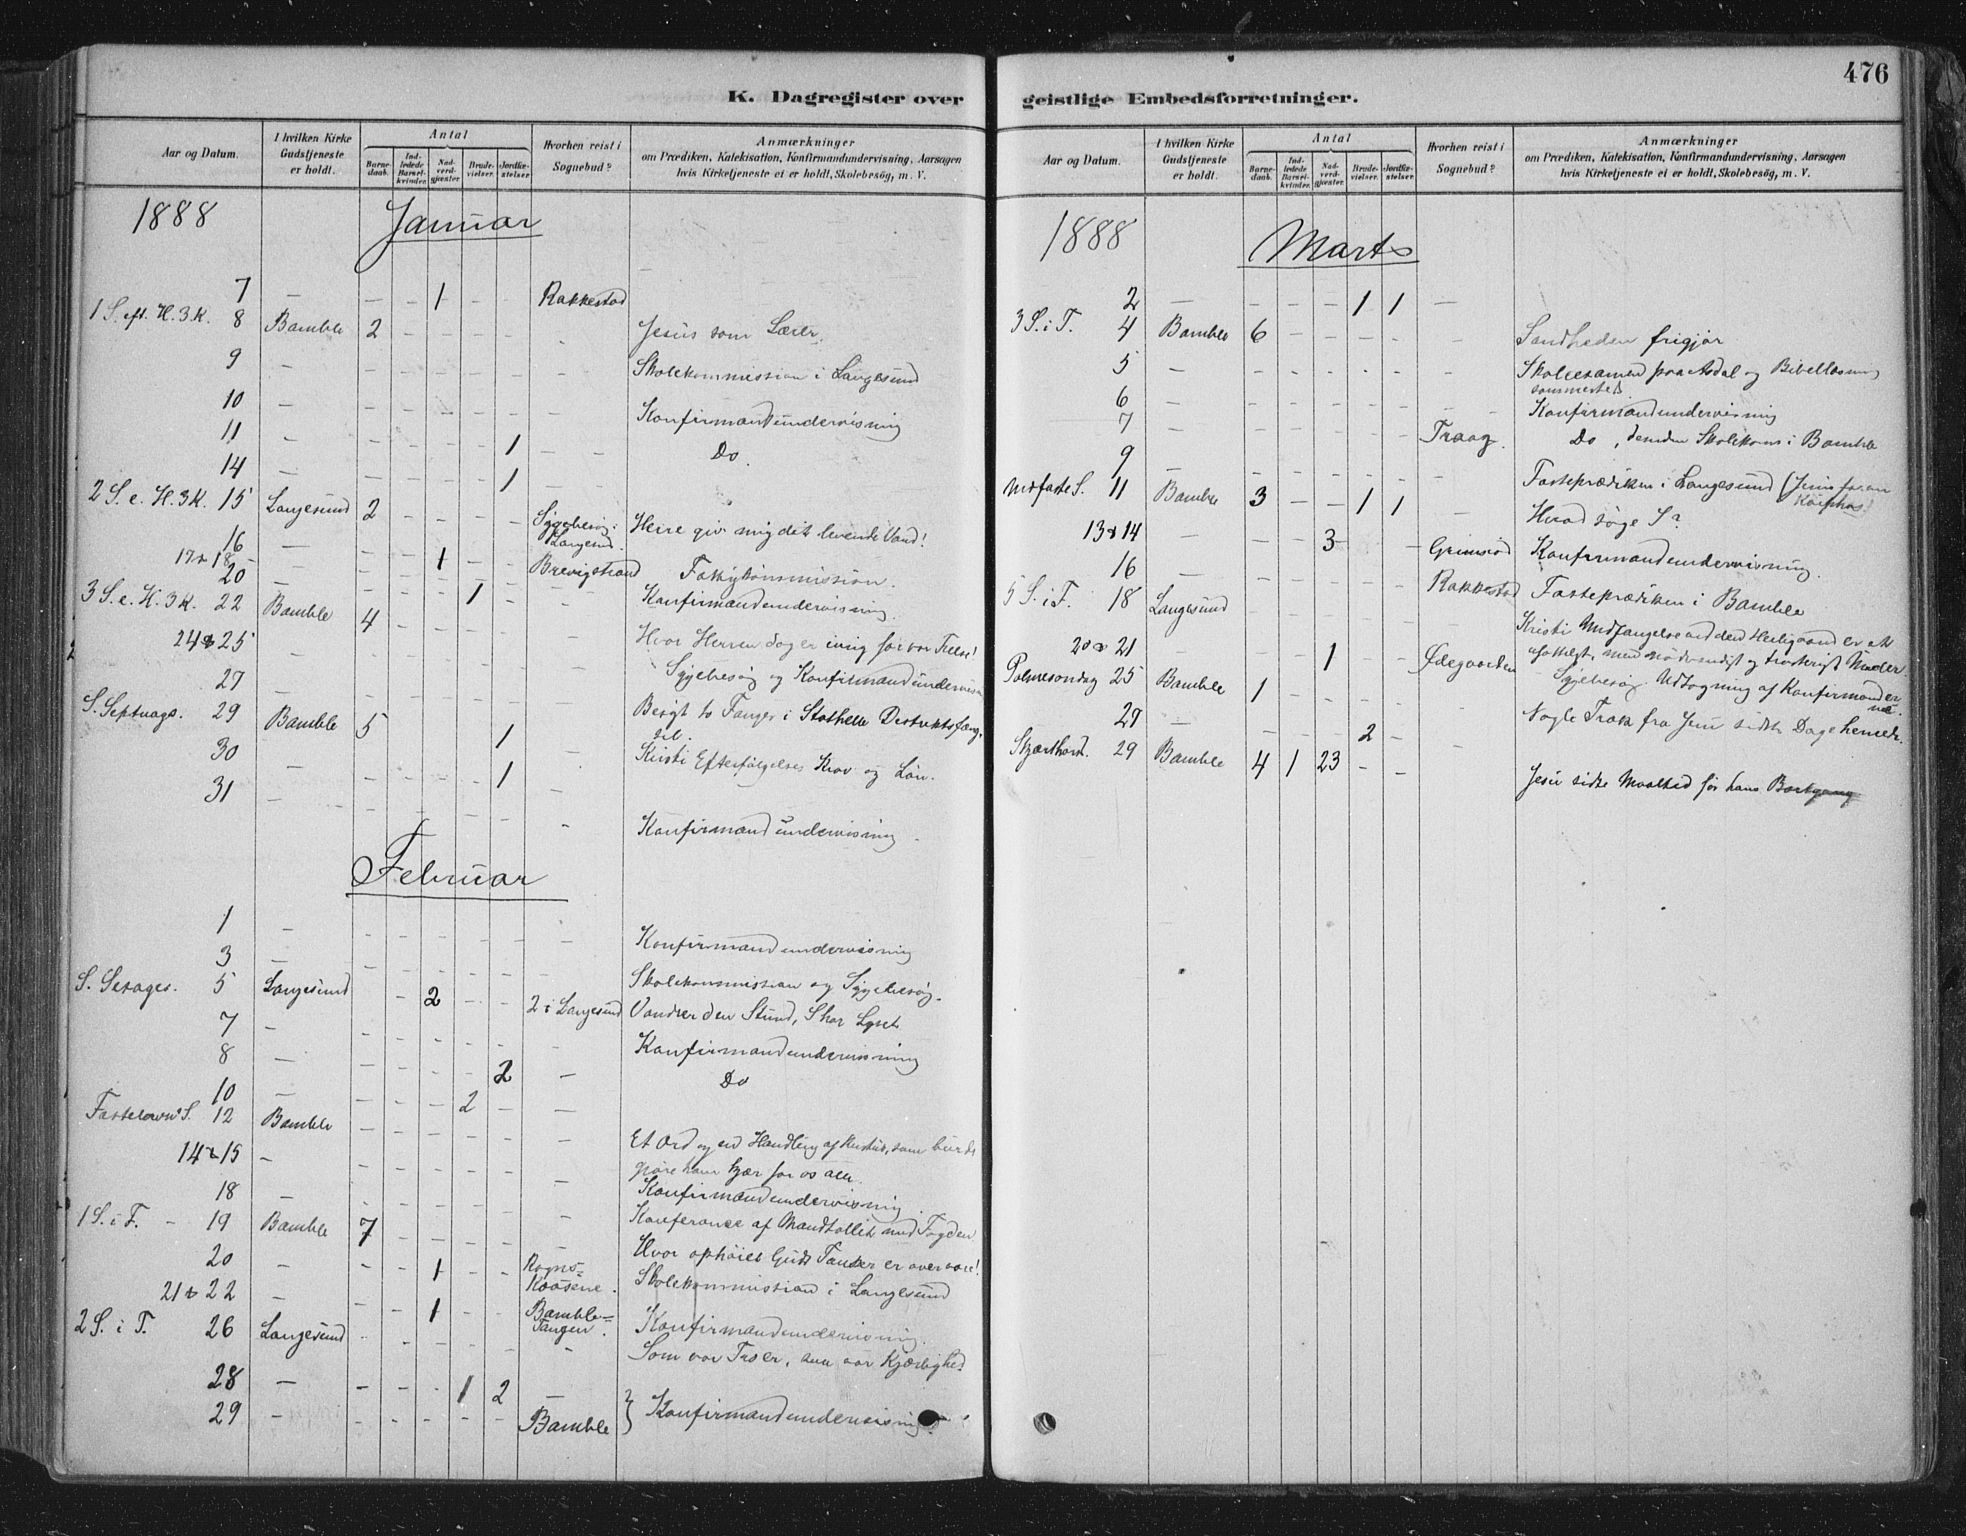 K. Dagregister over
Aar og Datum.
I hvilken Kirke Gudstjeneste er holdt.
Antal
Barne-daab.
Ind-ledede Barsel-kvinder.
Nad-verd-gjester.
Brude-vielser.
Jordfæ-stelser.
Hvorhen reist i Sognebud?
Anmærkninger
om Prædiken, Katekisation, Konfirmandundervisning, Aarsagen
hvis Kirketjeneste ei er holdt, Skolebesøg, m. V.
1888
Januar
7 — — — 1 — — Rakkestad
1 S. eft. H. 3 K. 8 Bamble 2 — — — — Jesus som Lærer
9 — Skolekommission i Langesund
10 — Konfirmandundervisning
11 — 1 Do
14 — 1
2 S. e. H. 3 K. 15 Langesund 2 Sygebesøg i Langesund. Herre giv mig det levende Vand!
16 —
17 & 18 — 1 Brevigstrand
20 — 1 Konfirmandundervisning
3 S. e. H. 3 K. 22 Bamble 4 Hvor Herren
24 & 25 — Sygebesøg og Konfirmandundervisn
27 — Fanger i Stathelle
S. Septuags. 29 Bamble 5 1 Kristi Efterfølgelses Krav og Løn.
30 — 1
31 — Konfirmandundervisning
Februar
1 — Konfirmandundervisning
3 — Skolekommission og Sygebesøg.
S. Sexages. 5 Langesund — — 2 — — 2 i Langesund Vandrer den Stund, I har Lyset
7 — Konfirmandundervisning
8 — 2 — Do
10 — 2 — —
Fastelavns S. 12 Bamble Et Ord og en Handling af Kristus, som burde
gjøre ham kjær for os alle.
14 & 15 — Konfirmandundervisning
18 — Konferance af Mandtallet med Fogden
1 S. i F. — 19 Bamble 7 Hvor ophøiet Guds Tanker er over vore!
20 — 1 Skolekommission i Langesund
21 & 22 — 1 Bamble= Tangen. Konfirmandundervisning.
2 S. i F. 26 Langesund Som vor Tro er, saa vor Kjærlighed
28 — — — — 1 2 —
29 — — — — — — Bamble } Konfirmandundervisning.
476
geistlige Embedsforretninger.
Aar og Datum.
I hvilken Kirke Gudstjeneste er holdt.
Antal
Barne-daab.
Ind-ledede Barsel-kvinder.
Nad-verd-gjester.
Brude-vielser.
Jordfæ-stelser.
Hvorhen reist i Sognebud?
Anmærkninger
om Prædiken, Katekisation, Konfirmandundervisning, Aarsagen
hvis Kirketjeneste ei er holdt, Skolebesøg, m. V.
1888
Marts
2 — — — — 1 1 —
3 S. i F. 4 Bamble 6 — — — — — Sandheden frigjør
5 Skoleexamen paa Asdal og Bibellæsning
sammesteds
6 Konfirmandundervisning
7 Traag. Do, Skolekom i Bamble
9 — Fasteprædiken i Langesund (Jesus foran Kaiphas)
Midfaste S. 11 Bamble 3 — — 1 1 — Hvad søge I?
13 & 14 — 3 Konfirmandundervisning.
16 — Rakkestad Fasteprædiken i Bamble
5 S. i F. 18 Langesund Kristi Undfangelse ved den Helligaand er et
ufatteligt, men nødvendigt og trøsterigt Under.
20 & 21 — 1 Ødegaarden Sygebesøg. Udtagning af Konfirmanderne.
Palmesøndag 25 Bamble 1 Nogle Træk fra Jesu sidste Dage
29 — 2 —
Skjærthorsd. 29 Bamble 4 1 23 — — Jesu sidste Maaltid før hans Bortgang